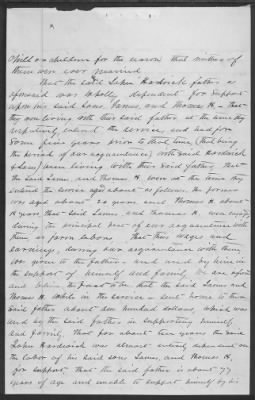 child or children for the reason that neither of
them were ever married
That the said Luke Hardwick father as
aforesaid was wholly dependent for support
upon his said sons James, and Thomas H. - that
they were living with their said father at the time they
respectively entered the service, and had for
some five years prior to that time, (that being
the period of our acquaintance with said Hardwick
& sons) been living with their said father. That
the said James, and Thomas H. were at the time they
entered the service aged about as follows. the former
was aged about years and Thomas H. about
18 years, that said James, and Thomas H. were
during the principal part of our acquaintance with
them as farm laborers That their wages and
earnings during our acquaintance with them,
were given to the father and used by him in
the support of himself and family, We are
and believe the fact to be that the said James and
Thomas H. while in the service sent home to their
said father about six hundred dollars, which was
used by the said father in supporting himself
and family, That for about two years the said
Luke Hardwick was almost entirely dependent on
the labor of his said sons James, and Thomas H,
for support, that the said father is about 77
years of age and unable to support himself by his